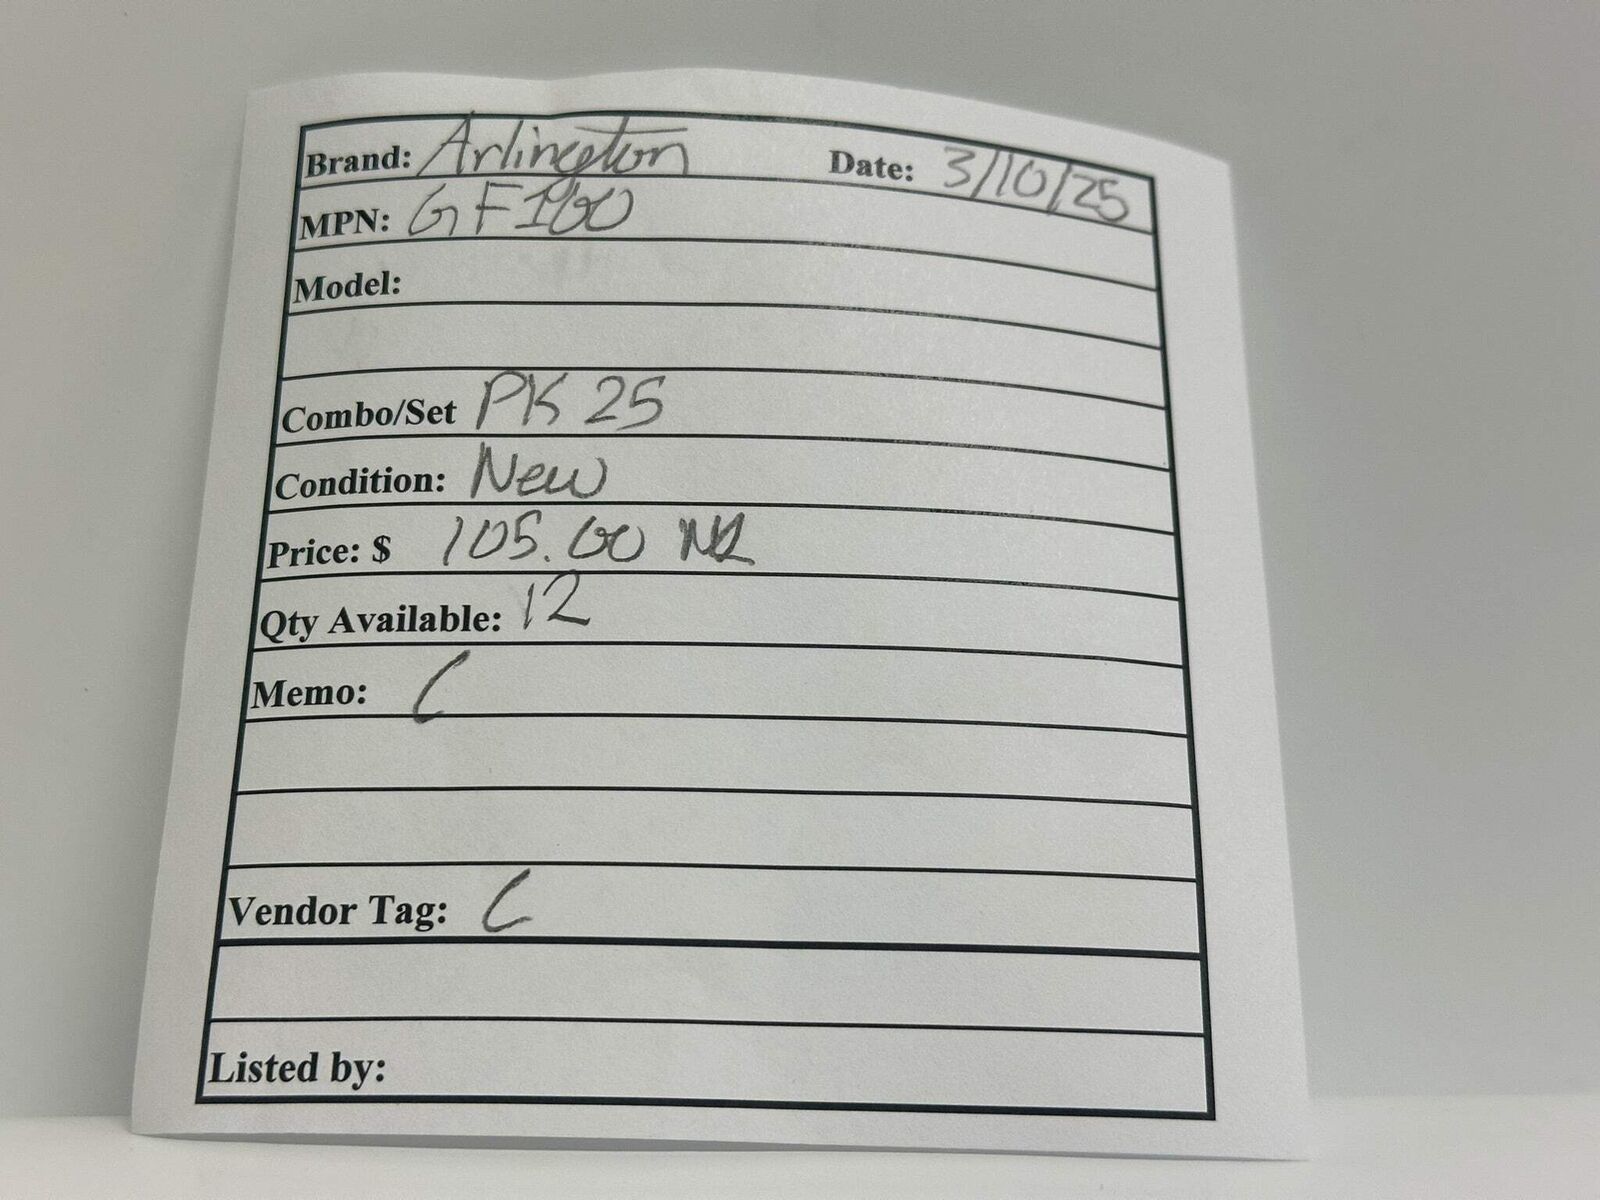 Brand: Arlington Date: 3/10/25
MPN: GF100
Model:
Combo/Set PK 25
Condition: New
Price: $ 105.00 NR
Qty Available: 12
Memo: C
Vendor Tag: C
Listed by: